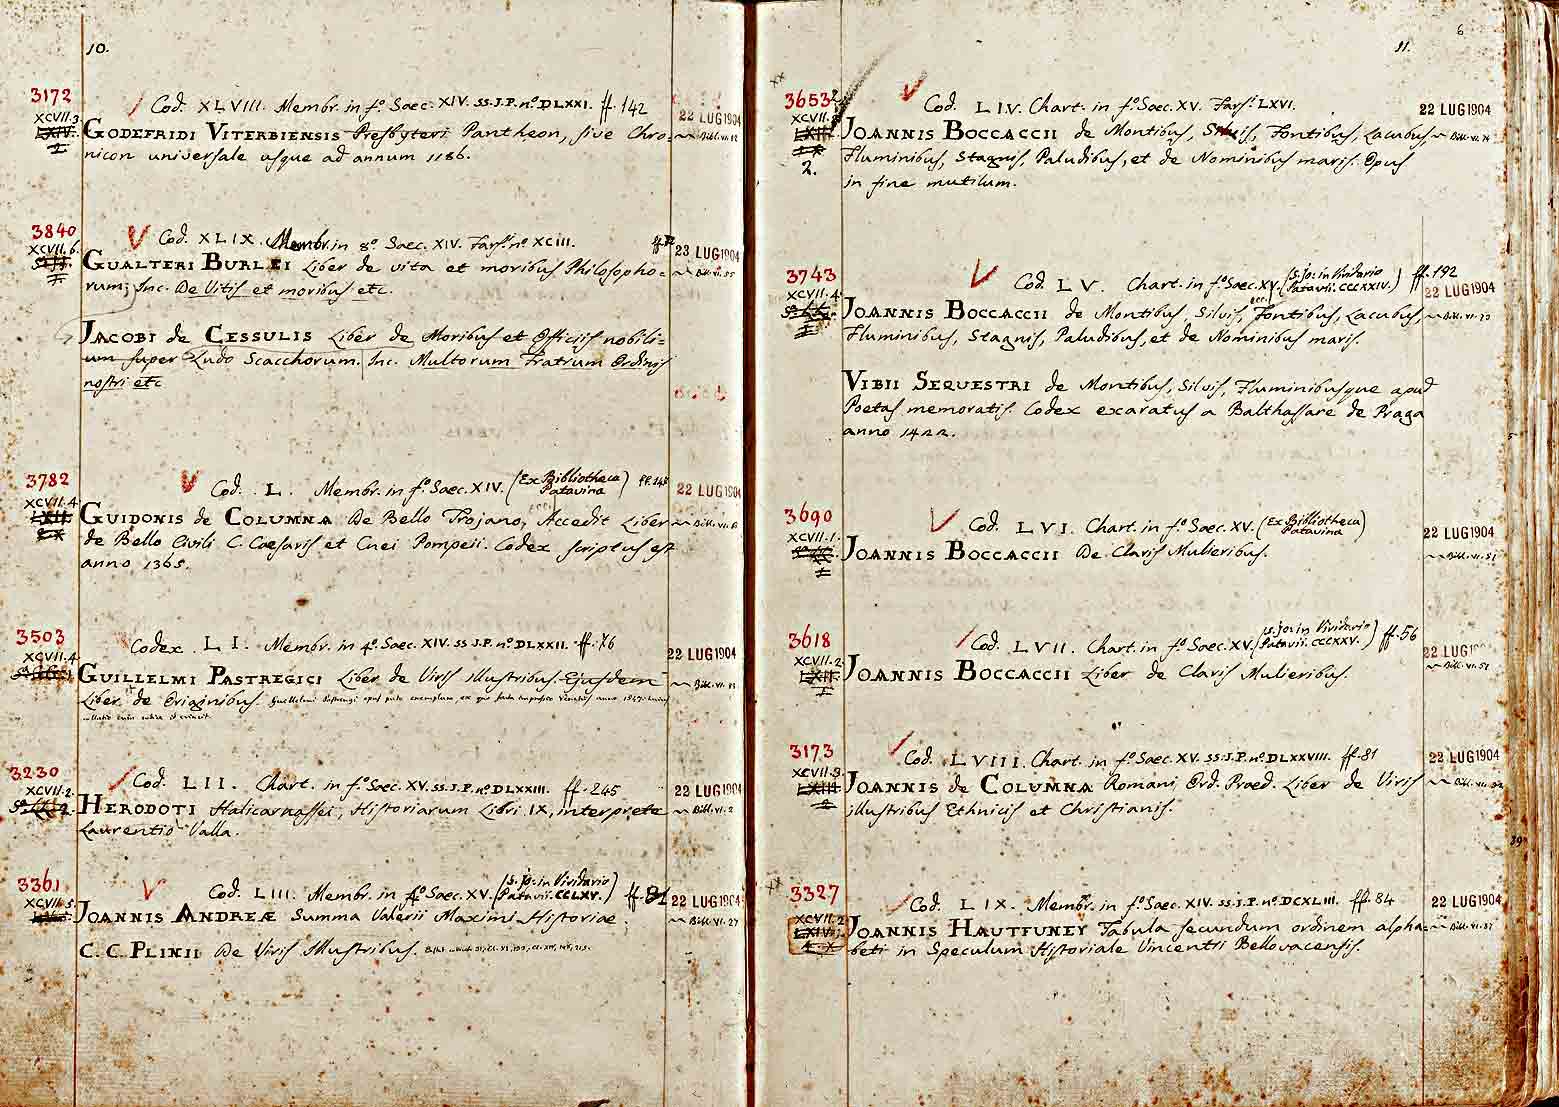 10.
3172
XCVII.3.
Cod. XLVIII. Membr. in f.º Saec. XIV. SS.J.P. nº DLXXI. ff. 142
22 LUG 1904
GODEFRIDI VITERBIENSIS Presbyteri Pantheon, sive Chro-
nicon universale usque ad annum 1186.
3840
XCVII.6.
Cod. XLIX. Membr. in 8º. Saec. XIV. Fars. nº. XCIII.
23 LUG 1904
GUALTERI BURLEI Liber de vita et moribus Philosopho-
rum; Inc. De Vitis et moribus etc.
JACOBI de CESSULIS Liber de Moribus et Officiis nobili-
um super Ludo Scacchorum. Inc. Multorum Fratrum Ordinis
nostri etc
3782
XCVII.4.
Cod. L. Membr. in f.º Saec. XIV. (Ex Bibliotheca Patavina) ff. 145
22 LUG 1904
GUIDONIS de COLUMNA De Bello Trojano, Accedit Liber
de Bello Civili C. Caesaris et Cnei Pompeii. Codex scriptus est
anno 1365.
3503
XCVII.4.
Codex LI. Membr. in 4º. Saec. XIV. SS J.P. nº DLXXII. ff. 76
22 LUG 1904
GUILLELMI PASTREGICI Liber de Viris Illustribus. Ejusdem
Liber de Originibus.
3230
XCVII.2.
Cod. LII. Chart. in f.º Saec. XV. SS.J.P. nº DLXXIII. ff. 245
22 LUG 1904
HERODOTI Halicarnassei, Historiarum Libri IX, interprete
Laurentio Valla.
3361
XCVII.5.
Cod. LIII. Membr. in fº Saec. XV. (S. Jo: in Viridario Patavii. CCLXV.) ff. 81
22 LUG 1904
JOANNIS ANDREÆ Summa Valerii Maximi Historiae.
Bibl. VI. 27
C. C. PLINII De Viris Illustribus.
6
11.
3653
XCVII.
2.
Cod. LIV. Chart. in f.º Saec. XV. Fars. LXVI.
22 LUG 1904
JOANNIS BOCCACCII de Montibus, Silvis, Fontibus, Lacubus,
Fluminibus, Stagnis, Paludibus, et de Nominibus maris. Opus
in fine mutilum.
3743
XCVII.4.
Cod. LV. Chart. in f.º Saec. XV. (S. Jo: in Viridario Patavii. CCCXXIV.) ff. 192
22 LUG 1904
JOANNIS BOCCACCII de Montibus, Silvis, Fontibus, Lacubus,
Fluminibus, Stagnis, Paludibus, et de Nominibus maris.
VIBII SEQUESTRI de Montibus, Silvis, Fluminibusque apud
Poetas memoratis. Codex exaratus a Balthassare de Praga
anno 1422.
3690
XCVII.1.
Cod. LVI. Chart. in fº. Saec. XV. (Ex Bibliotheca Patavina)
22 LUG 1904
JOANNIS BOCCACCII De Claris Mulieribus.
Bibl. VI. 51
3618
XCVII.2.
Cod. LVII. Chart. in fº. Saec. XV. (S. Jo: in Viridario Patavii. CCCXXV.) ff. 56
22 LUG
JOANNIS BOCCACCII Liber de Claris Mulieribus.
Bibl. VI. 51
3173
XCVII.3.
Cod. LVIII. Chart. in fº. Saec. XV. SS.J.P. nº DLXXVIII. ff. 81
22 LUG 1904
JOANNIS de COLUMNA Romani, Ord. Praed. Liber de Viris
illustribus Ethnicis et Christianis.
3327
XCVII.2.
Cod. LIX. Membr. in fº. Saec. XIV. SS.J.P. nº DCXLIII. ff. 84
22 LUG 1904
JOANNIS HAUTFUNEY Tabula secundum ordinem alpha-
beti in Speculum Historiale Vincentii Bellovacensis.